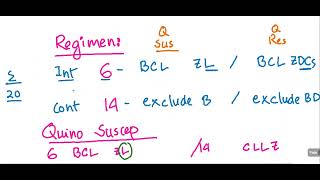 Regimen: Q Sus Q Res
S 20 Int 6 - BCL ZL / BCL ZDCs
cont 14 - exclude B / exclude BD
Quino Suscep
6 BCL ZL /14 CLLZ